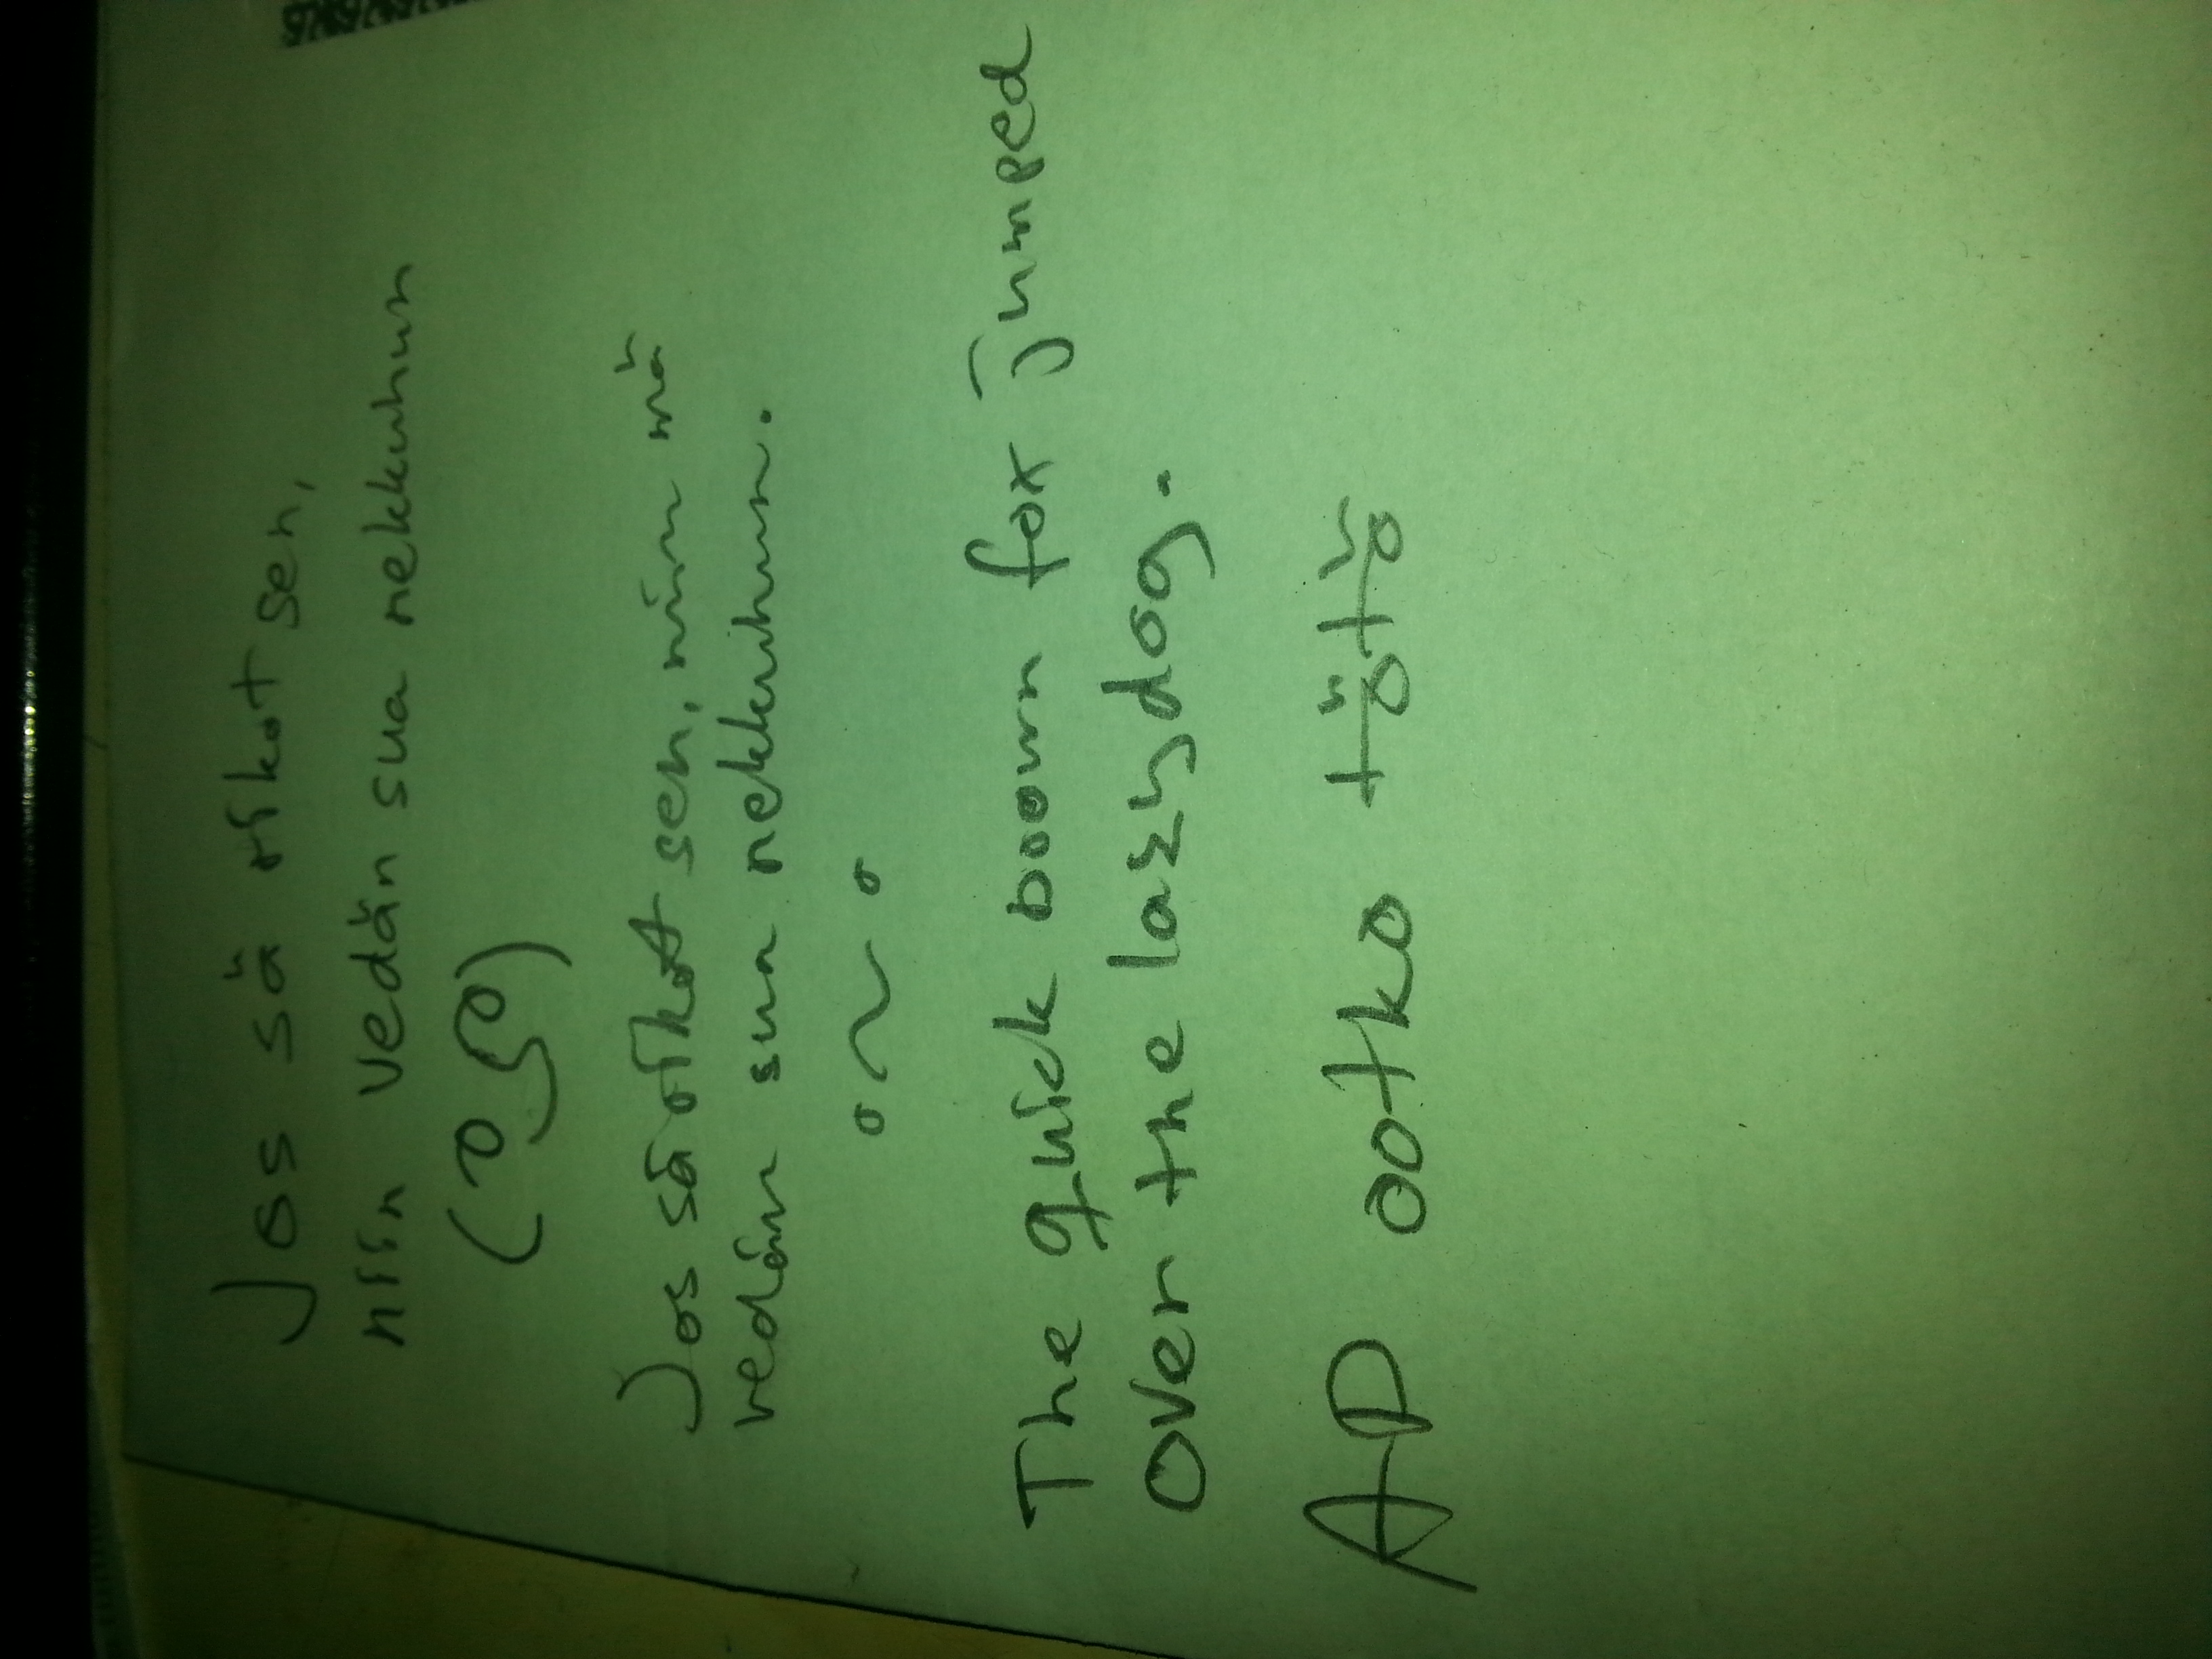 Jos sä rikot sen,
niin vedän sua nekkuhun
Jos sä rikot sen, niin mä
vedän sua nekkuhun.
The quick boown fox jumped
over the lazy dog.
AP ootko tötö